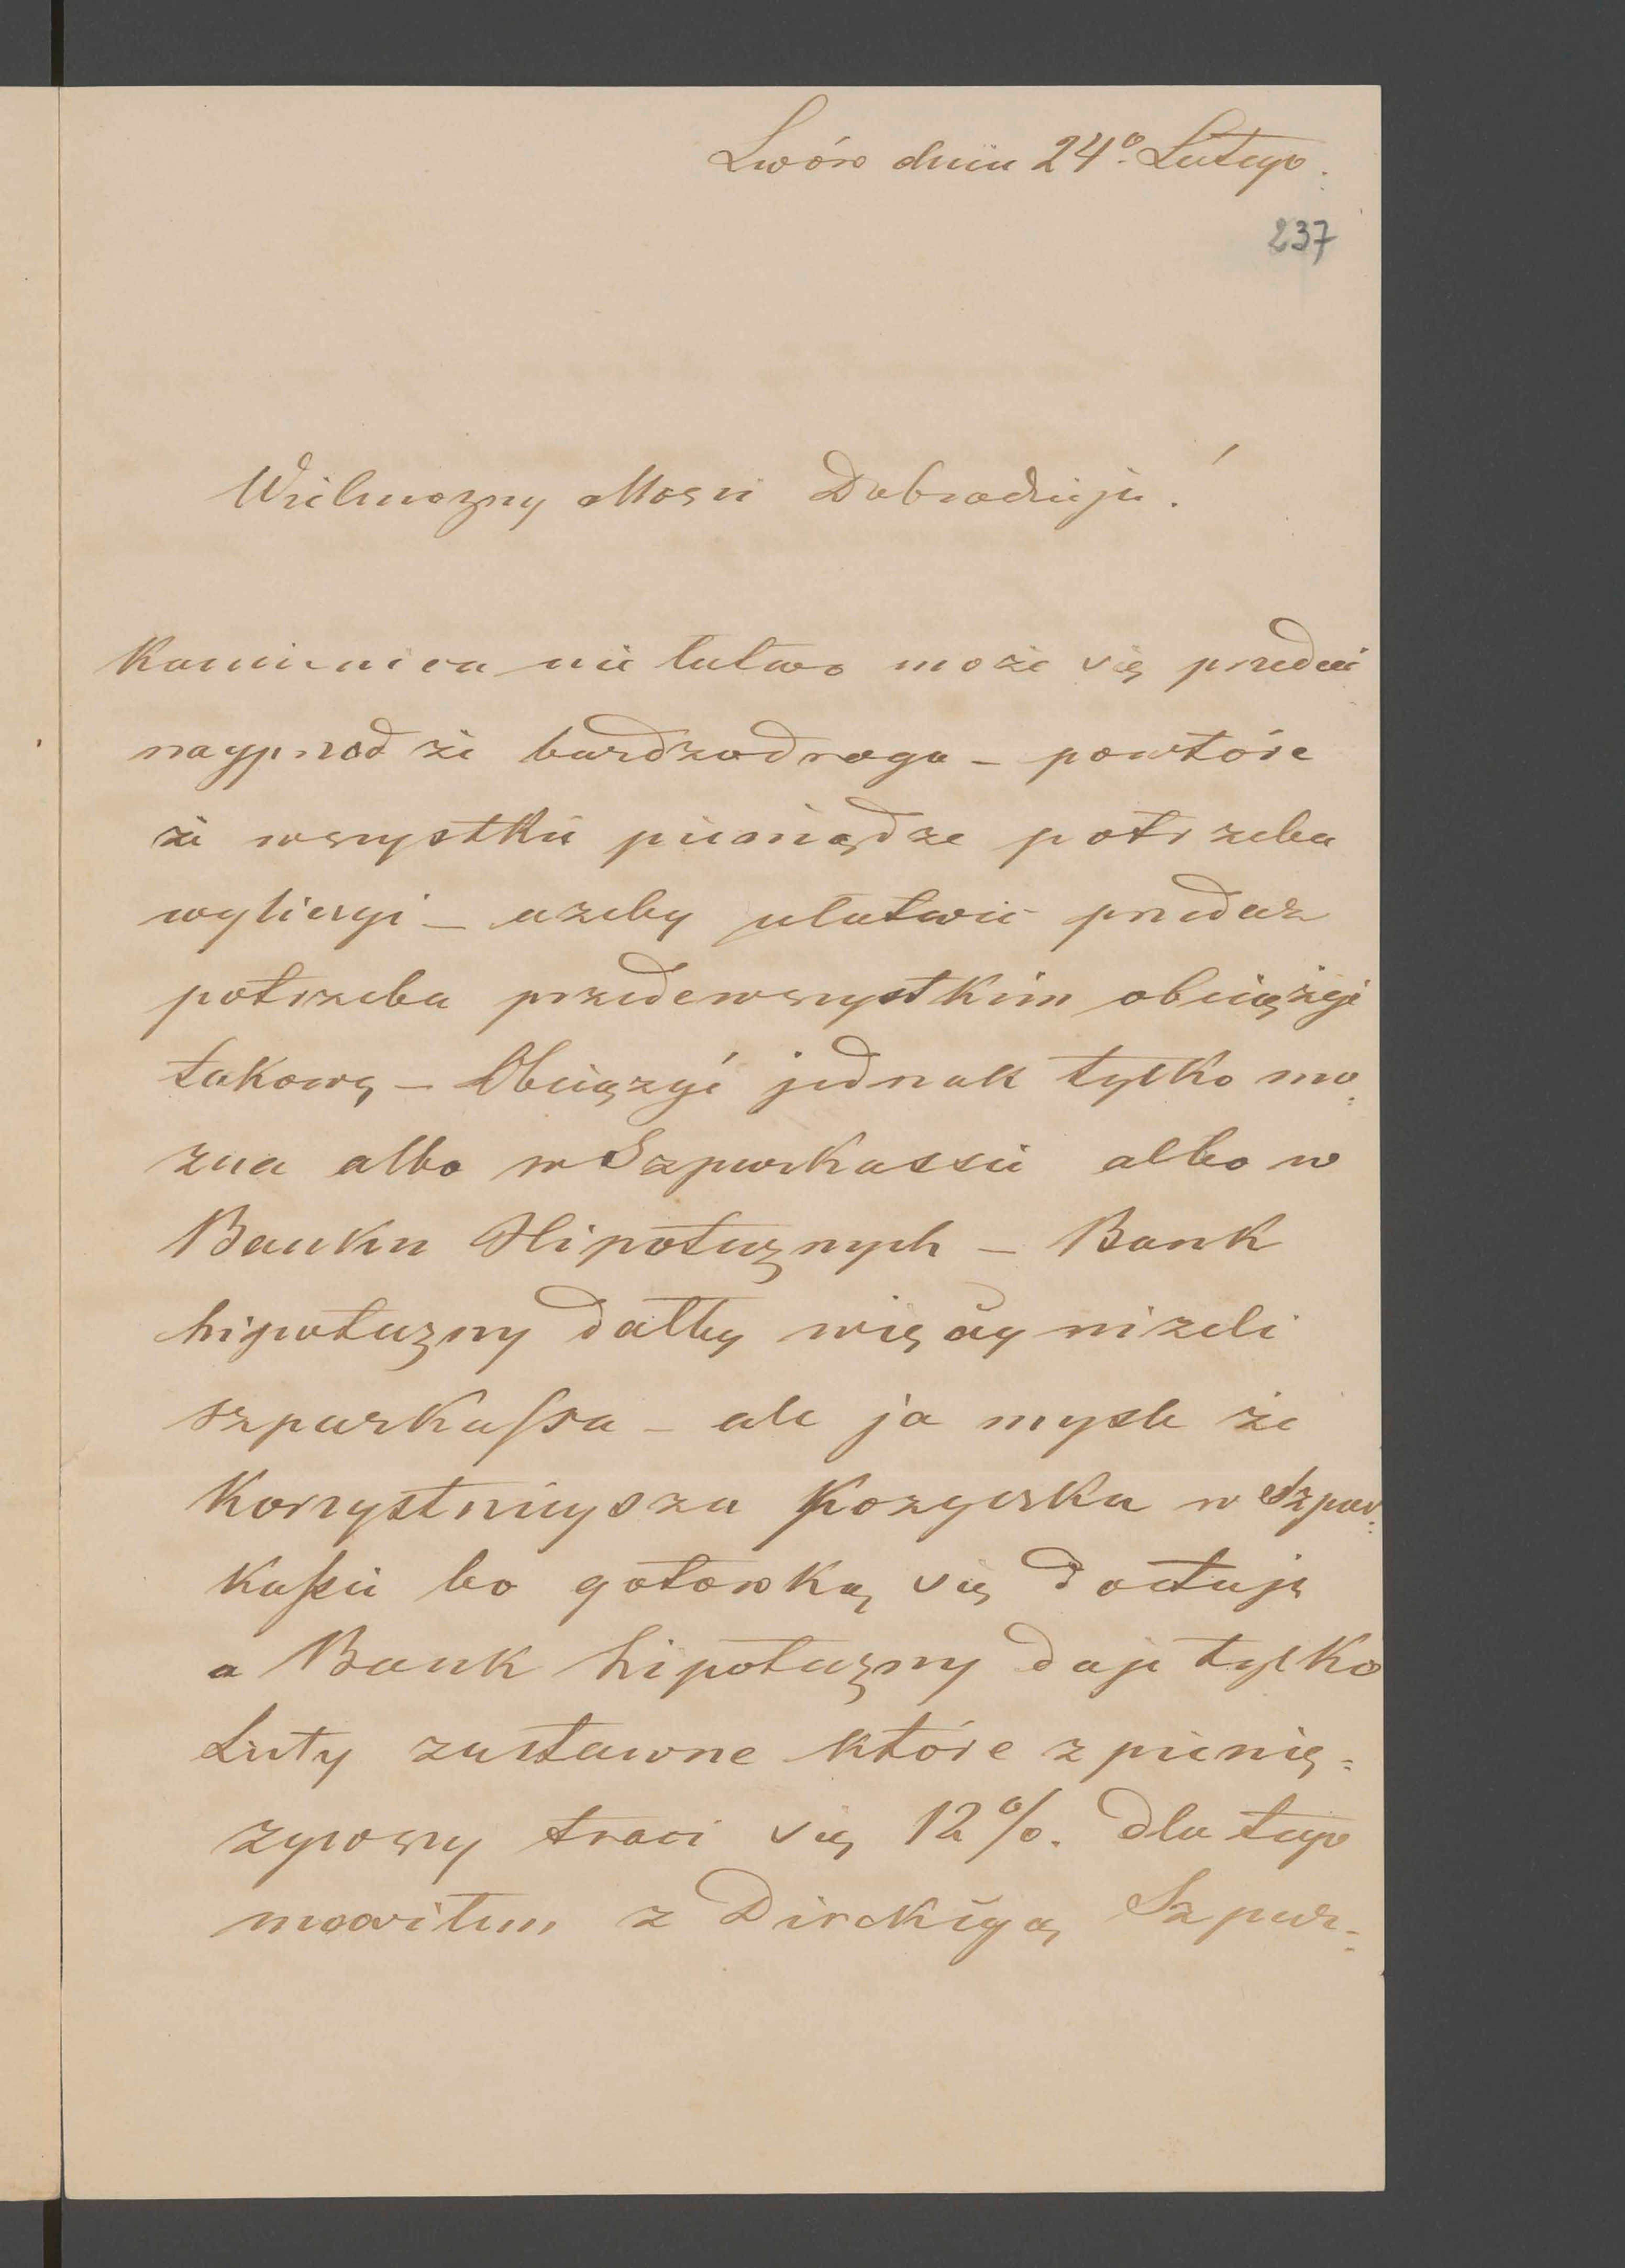 Lwów dnia 24o. Lutego.
237
Wielmozny Mosci Dobrodzieju!
Kamienica nie łatwo może się przedać
nayprzod że bardzo droga – powtóre
że wszystkie pieniądze potrzeba
wyliczyć – azeby ułatwić przedaz
potrzeba przedewszystkim obciążyć
takową – Obciązyć jednak tylko mo:
zna albo w Szparkassie albo w
Banku Hipotecznych – Bank
hipoteczny dałby więcey nizeli
szparkassa – ale ja mysle że
Korzystnieysza pozyczka w Szpar:
kassie bo gotowką się dostaje
a Bank hipoteczny daje tylko
Listy zastawne które z pienię:
zywszy traci się 12%. dla tego
mowiłem z Direkcyą Szpar: